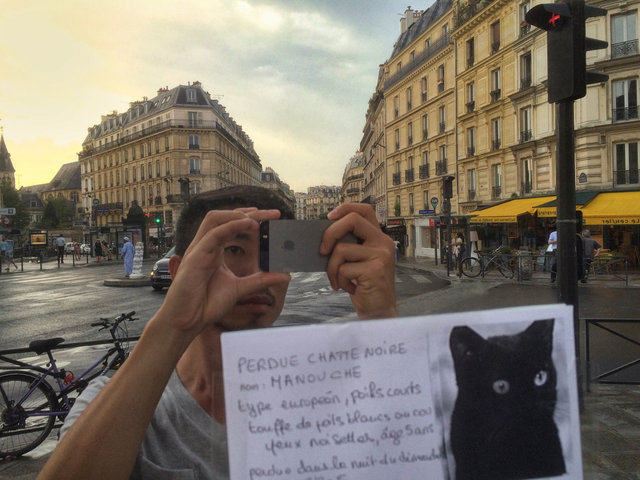 PERDUE CHATTE NOIRE
nom : MANOUCHE
type européen, poils courts
touffe de poils blancs au cou
yeux noisettes, âge 5 ans
perdue dans la nuit du dimanche